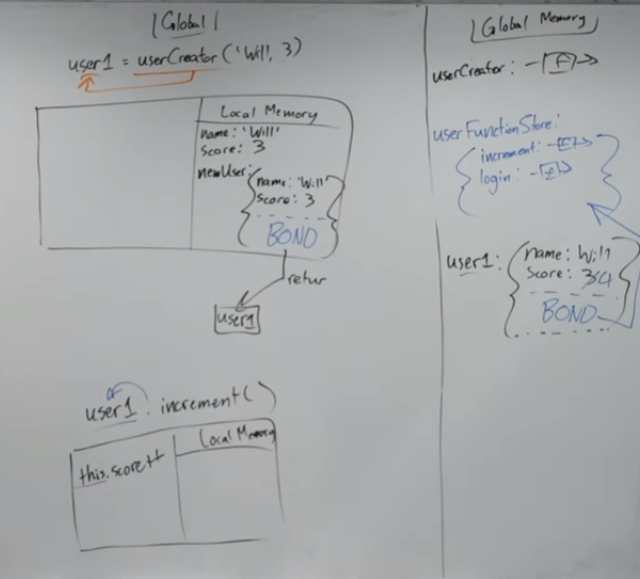 Global
user1 = userCreator('Will', 3)
Local Memory
name: 'Will'
score: 3
newUser:
name: 'Will'
score: 3
BOND
retur
user1
user1.increment()
Local Memory
this.score++
Global Memory
userCreator: -[F]->
userFunctionStore:
increment: -[F]->
login: -[F]->
user1:
name: Will
score: 34
BOND